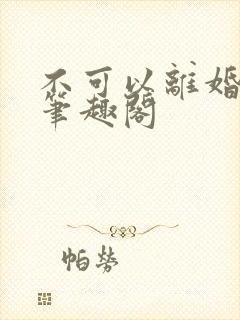 不可以離婚
筆趣閣
帕勞